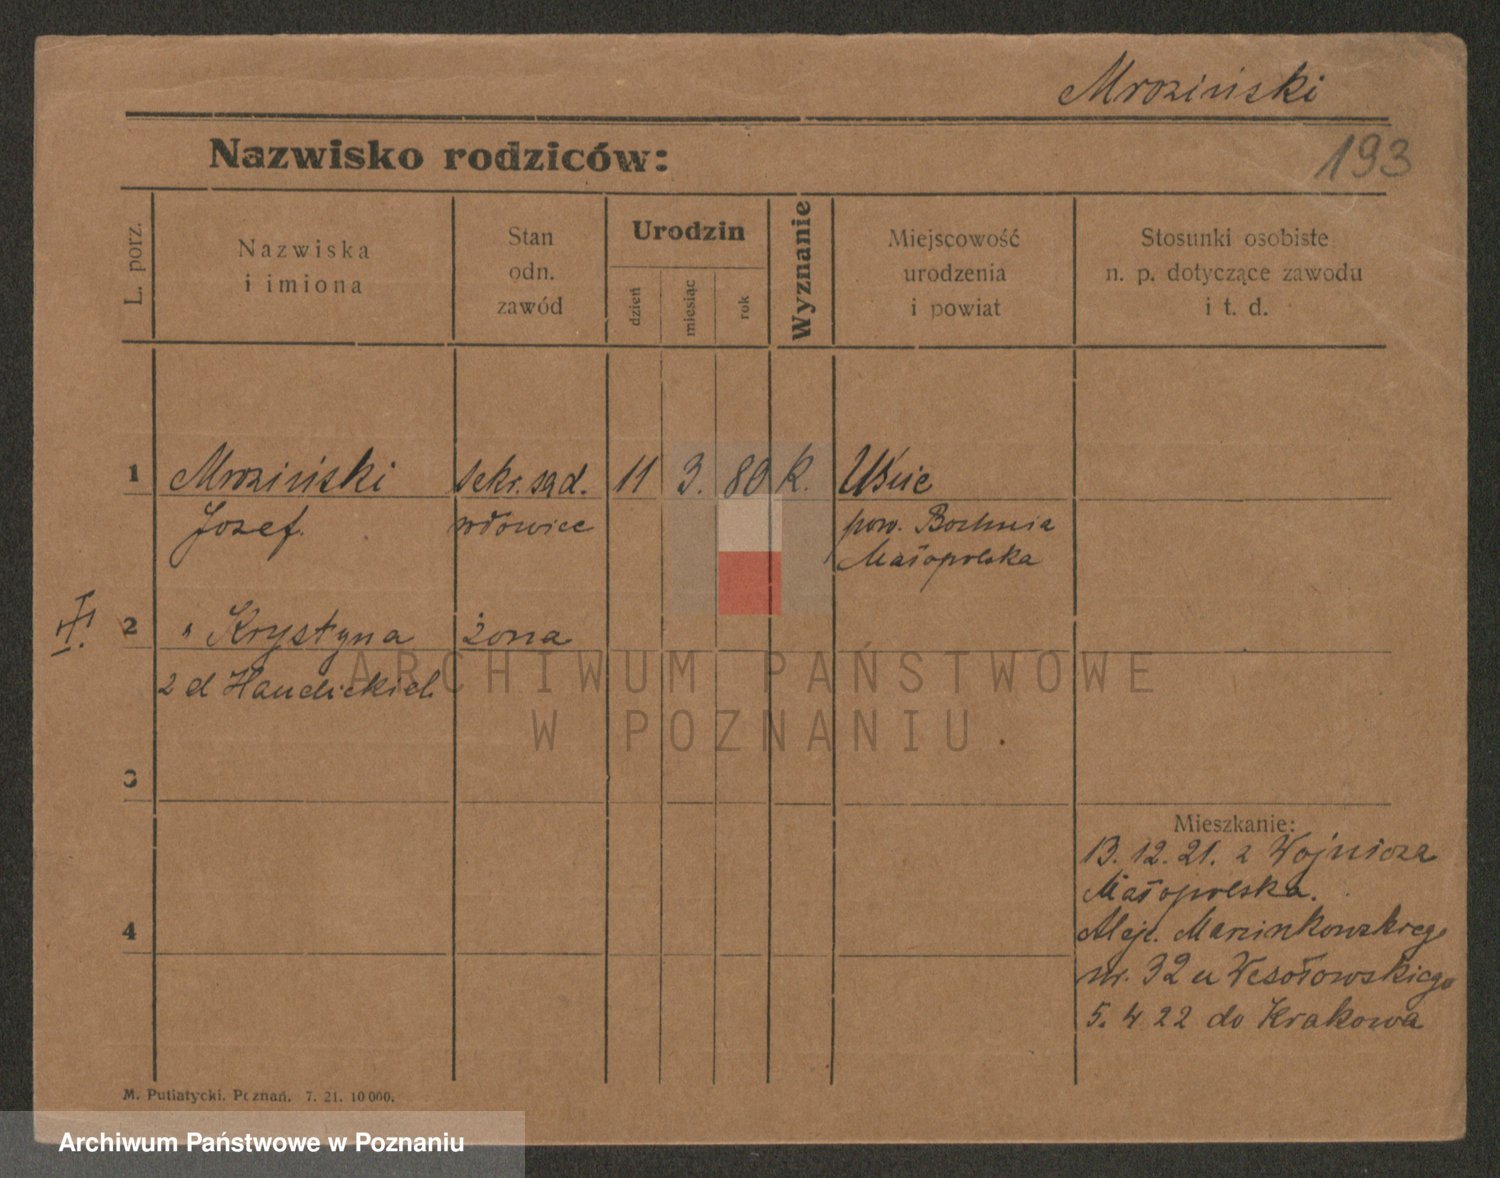 Mroziński
193
Nazwisko rodziców:
L. porz.
Nazwiska
i imiona
Stan
odn.
zawód
Urodzin
dzień
miesiąc
rok
Wyznanie
Miejscowość
urodzenia
i powiat
Stosunki osobiste
n. p. dotyczące zawodu
i t. d.
1 Mroziński sekr. sąd. 11 3. 80 k. Uście
Józef. wdowiec pow. Bochnia
Małopolska
III. 2 " Krystyna żona
z d
ARCHIWUM PAŃSTWOWE
W POZNANIU
3
Mieszkanie:
13. 12. 21. z Wojnicza
Małopolska.
4 Alej. Marcinkowskiego
nr. 32 u Wesołowskiego
5. 4 22 do Krakowa
M. Putiatycki, Poznań. 7. 21. 10 000.
Archiwum Państwowe w Poznaniu